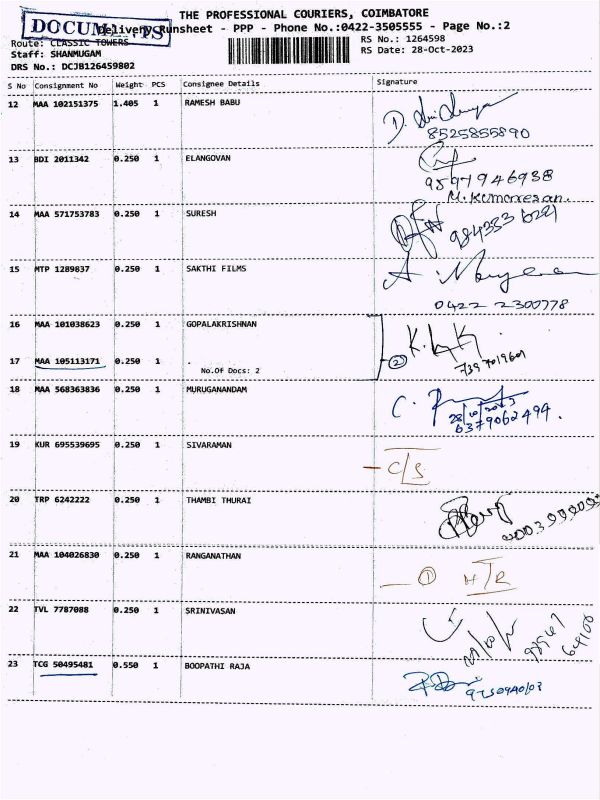 THE PROFESSIONAL COURIERS, COIMBATORE
DOCUMENTS
Delivery Runsheet - PPP - Phone No.:0422-3505555 - Page No.:2
Route: CLASSIC TOWERS
RS No.: 1264598
Staff: SHANMUGAM
RS Date: 28-Oct-2023
DRS No.: DCJB126459802
S No Consignment No Weight PCS Consignee Details Signature
12 MAA 102151375 1.405 1 RAMESH BABU
8525855890
13 BDI 2011342 0.250 1 ELANGOVAN
9597946938
M. Kumaresan.
14 MAA 571753783 0.250 1 SURESH
15 MTP 1289837 0.250 1 SAKTHI FILMS
0422 2300778
16 MAA 101038623 0.250 1 GOPALAKRISHNAN
17 MAA 105113171 0.250 1 .
No.Of Docs: 2
2
18 MAA 568363836 0.250 1 MURUGANANDAM
28/10/2023
6379062494.
19 KUR 695539695 0.250 1 SIVARAMAN
C/S
20 TRP 6242222 0.250 1 THAMBI THURAI
21 MAA 104026830 0.250 1 RANGANATHAN
22 TVL 7787088 0.250 1 SRINIVASAN
23 TCG 50495481 0.550 1 BOOPATHI RAJA